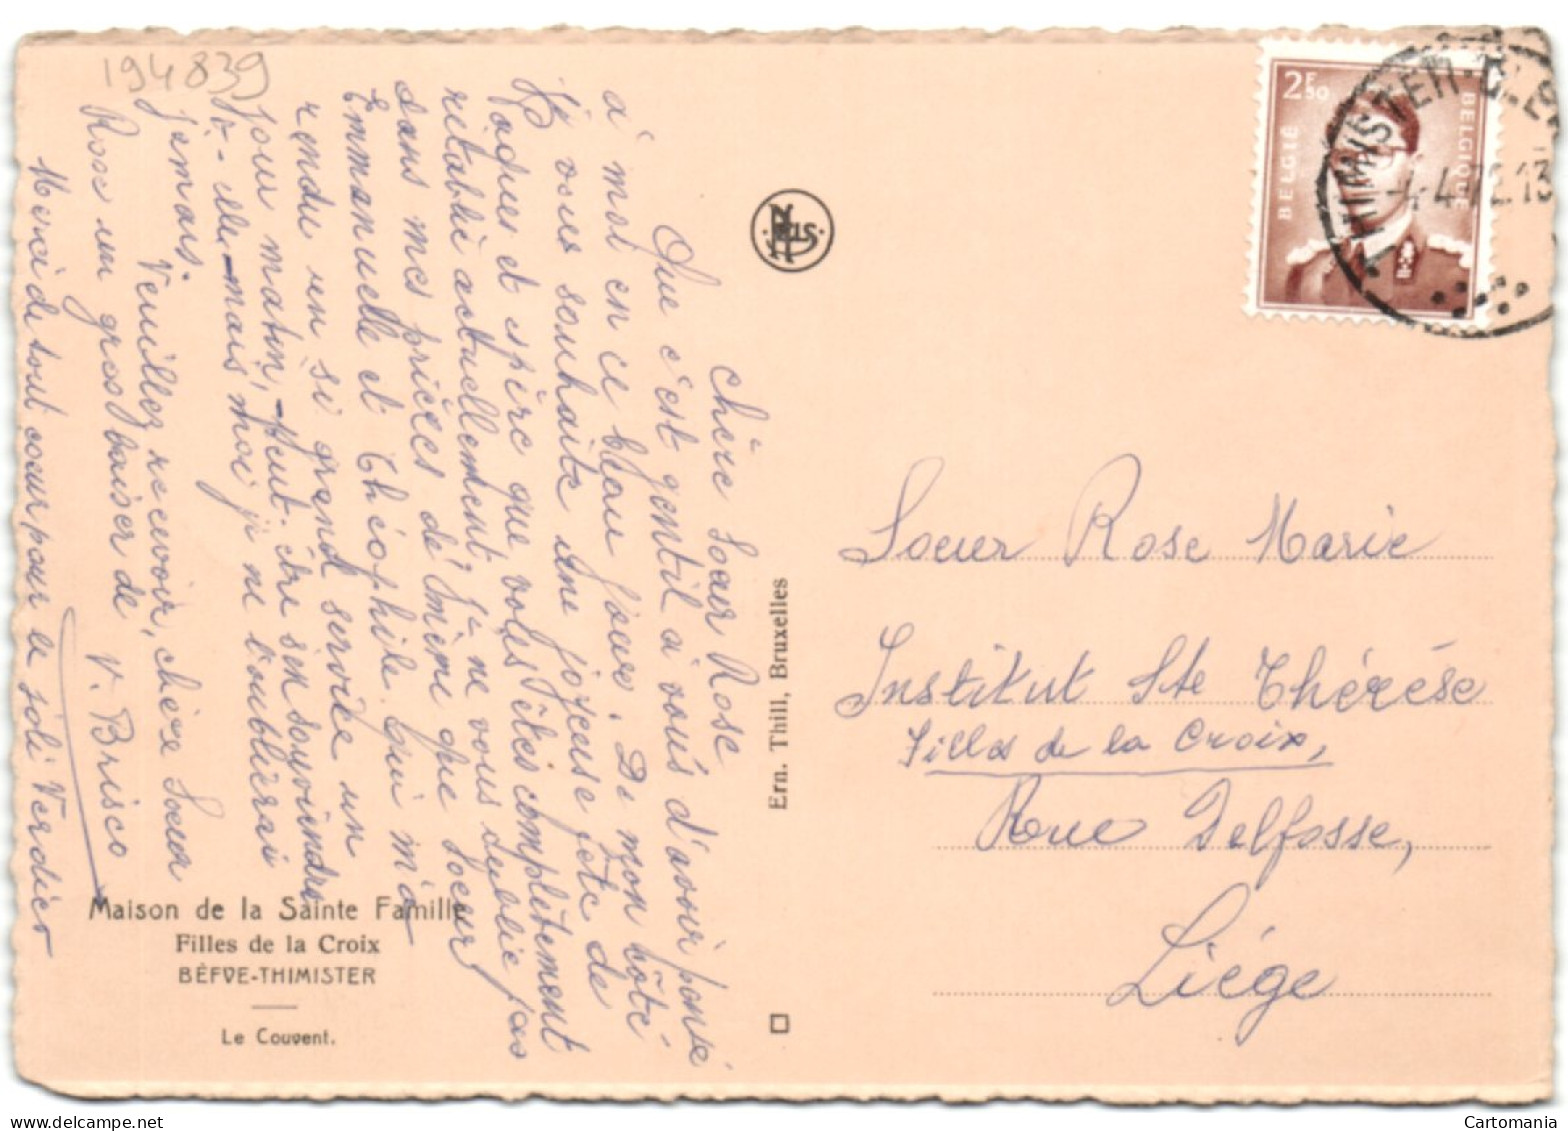 194839
Chère Sœur Rose
Que c'est gentil à vous d'avoir pensé
à moi en ce beau jour. De mon côté
je vous souhaite une joyeuse fête de
Pâques et espère que vous êtes complètement
rétabli actuellement, je ne vous oublie pas
dans mes prières de même que Soeur
Emmanuelle et Théophile qui m'a
rendu un si grand service un
jour matin, peut-être s'en souviendra
t-elle mais moi je ne l'oublierai
jamais.
Veuillez recevoir, chère Sœur
Rose un gros baiser de V. Brisco
Merci de tout cœur pour le joli Verdier
Maison de la Sainte Famille
Filles de la Croix
BÈFVE-THIMISTER
Le Couvent.
NELS
Ern. Thill, Bruxelles
2F50
BELGIË
BELGIQUE
THIMISTER-CLER
-4-4-72.13
Soeur Rose Marie
Institut Ste Thérése
Filles de la Croix,
Rue Delfosse,
Liége
Cartomania